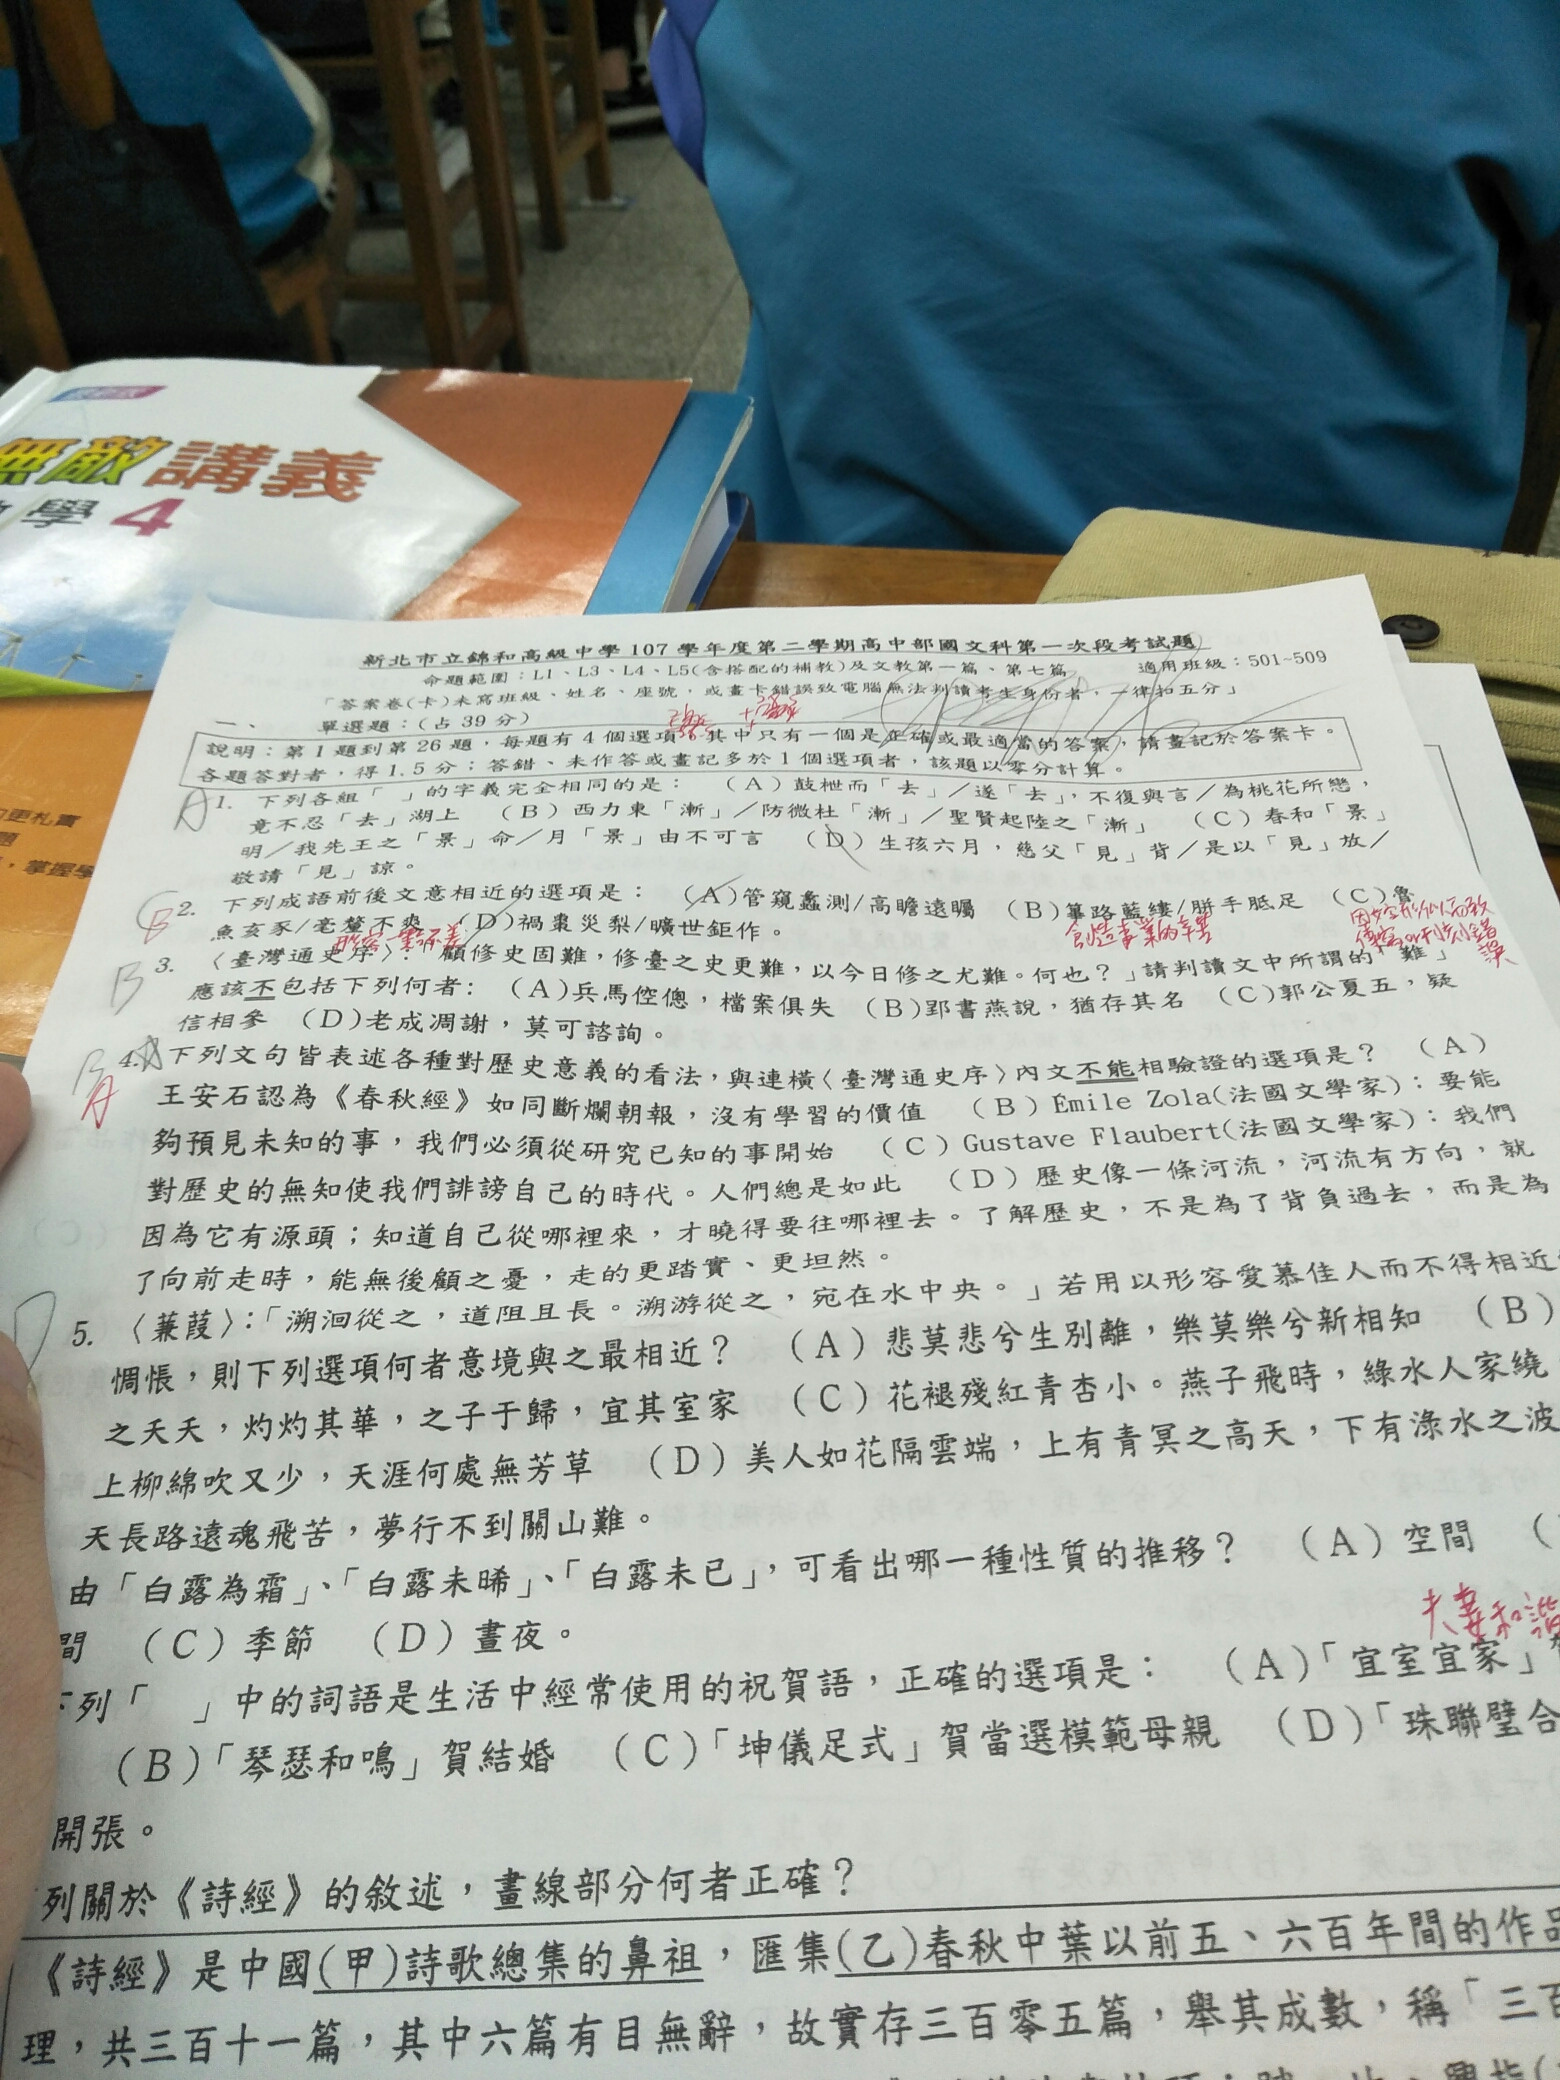 無敵講義
學 4
的更札實
題
，掌握學
新北市立錦和高級中學 107 學年度第二學期高中部國文科第一次段考試題
命題範圍：L1、L3、L4、L5(含搭配的補教)及文教第一篇、第七篇 適用班級：501~509
「答案卷(卡)未寫班級、姓名、座號，或畫卡錯誤致電腦無法判讀考生身份者，一律扣五分」
一、 單選題：(占 39 分)
說明：第 1 題到第 26 題，每題有 4 個選項，其中只有一個是正確或最適當的答案，請畫記於答案卡。
各題答對者，得 1.5 分；答錯、未作答或畫記多於 1 個選項者，該題以零分計算。
A 1. 下列各組「 」的字義完全相同的是： (A) 鼓枻而「去」／遂「去」，不復與言／為桃花所戀，
竟不忍「去」湖上 (B) 西力東「漸」／防微杜「漸」／聖賢起陸之「漸」 (C) 春和「景」
明／我先王之「景」命／月「景」由不可言 (D) 生孩六月，慈父「見」背／是以「見」放／
敬請「見」諒。
B 2. 下列成語前後文意相近的選項是： (A)管窺蠡測/高瞻遠矚 (B)篳路藍縷/胼手胝足 (C)魯
魚亥豕/毫釐不爽 (D)禍棗災梨/曠世鉅作。
創造事業的辛苦
B 3. 〈臺灣通史序〉：「顧修史固難，修臺之史更難，以今日修之尤難。何也？」請判讀文中所謂的「難」
應該不包括下列何者： (A)兵馬倥傯，檔案俱失 (B)郢書燕說，猶存其名 (C)郭公夏五，疑
信相參 (D)老成凋謝，莫可諮詢。
B A 4. 下列文句皆表述各種對歷史意義的看法，與連橫〈臺灣通史序〉內文不能相驗證的選項是？ (A)
王安石認為《春秋經》如同斷爛朝報，沒有學習的價值 (B) Émile Zola(法國文學家)：要能
夠預見未知的事，我們必須從研究已知的事開始 (C) Gustave Flaubert(法國文學家)：我們
對歷史的無知使我們誹謗自己的時代。人們總是如此 (D) 歷史像一條河流，河流有方向，就
因為它有源頭；知道自己從哪裡來，才曉得要往哪裡去。了解歷史，不是為了背負過去，而是為
了向前走時，能無後顧之憂，走的更踏實、更坦然。
D 5. 〈蒹葭〉：「溯洄從之，道阻且長。溯游從之，宛在水中央。」若用以形容愛慕佳人而不得相近
惆悵，則下列選項何者意境與之最相近？ (A) 悲莫悲兮生別離，樂莫樂兮新相知 (B)
之夭夭，灼灼其華，之子于歸，宜其室家 (C) 花褪殘紅青杏小。燕子飛時，綠水人家繞
上柳綿吹又少，天涯何處無芳草 (D) 美人如花隔雲端，上有青冥之高天，下有淥水之波
天長路遠魂飛苦，夢行不到關山難。
由「白露為霜」、「白露未晞」、「白露未已」，可看出哪一種性質的推移？ (A) 空間 (
間 (C) 季節 (D) 晝夜。
夫妻和諧
下列「 」中的詞語是生活中經常使用的祝賀語，正確的選項是： (A)「宜室宜家」
(B)「琴瑟和鳴」賀結婚 (C)「坤儀足式」賀當選模範母親 (D)「珠聯璧合
開張。
列關於《詩經》的敘述，畫線部分何者正確？
《詩經》是中國(甲)詩歌總集的鼻祖，匯集(乙)春秋中葉以前五、六百年間的作品
理，共三百十一篇，其中六篇有目無辭，故實存三百零五篇，舉其成數，稱「三百